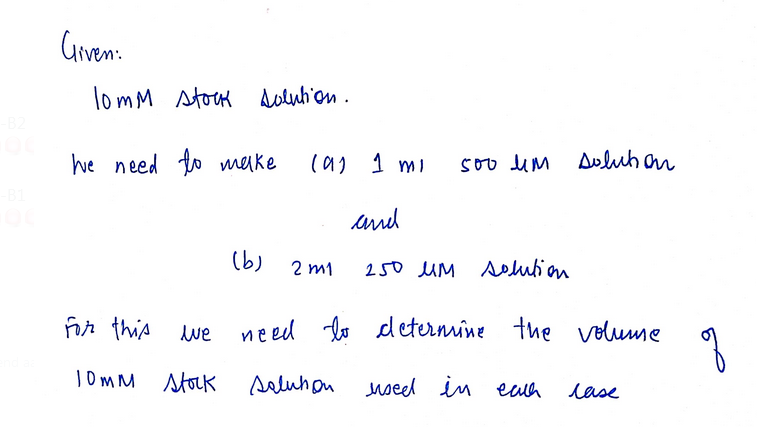 Given:
10mM stock solution.
We need to make (a) 1 ml 500 uM solution
and
(b) 2ml 250 uM solution
For this we need to determine the volume of
10mM stock solution used in each case